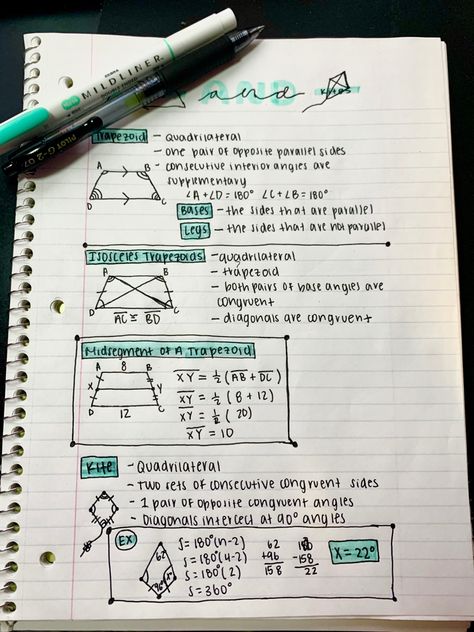 ZEBRA MILDLINER
PILOT G-2 07
AND
and
Kites
Trapezoid - Quadrilateral
- one pair of opposite parallel sides
- consecutive interior angles are
supplementary
∠A+∠D=180° ∠C+∠B=180°
A B
D C
Bases - the sides that are parallel
Legs - the sides that are not parallel
Isosceles Trapezoids - quadrilateral
- trapezoid
- both pairs of base angles are
congruent
- diagonals are congruent
A B
D C
AC ≅ BD
Midsegment of A Trapezoid
A 8 B
X Y
D 12 C
XY = ½ (AB + DC)
XY = ½ (8 + 12)
XY = ½ (20)
XY = 10
Kite - Quadrilateral
- Two sets of consecutive congruent sides
- 1 pair of opposite congruent angles
- Diagonals intercect at 90° angles
EX
62
96°
S = 180°(n-2)
S = 180°(4-2)
S = 180°(2)
S = 360°
62
+96
158
180
-158
22
X = 22°